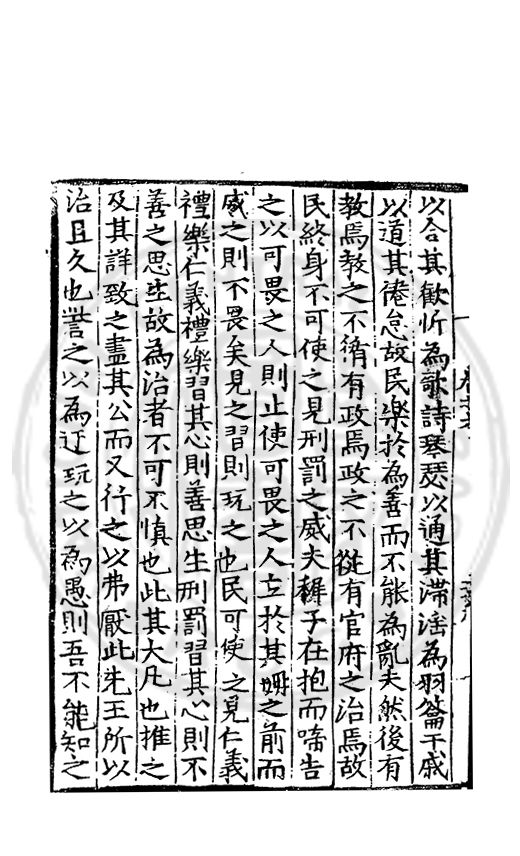 以合其歡忻為歌詩琴瑟以通其滯淫為羽籥干戚
以道其倦怠故民樂於為善而不能為亂夫然後有
教焉教之不脩有政焉政之不從有官府之治焉故
民終身不可使之見刑罰之威夫稺子在抱而啼告
之以可畏之人則止使可畏之人立於其㛐之前而
威之則不畏矣見之習則玩之也民可使之見仁義
禮樂仁義禮樂習其心則善思生刑罰習其心則不
善之思生故為治者不可不慎也此其大凡也推之
及其詳致之盡其公而又行之以弗厭此先王所以
治且久也訾之以為迂玩之以為愚則吾不能知之